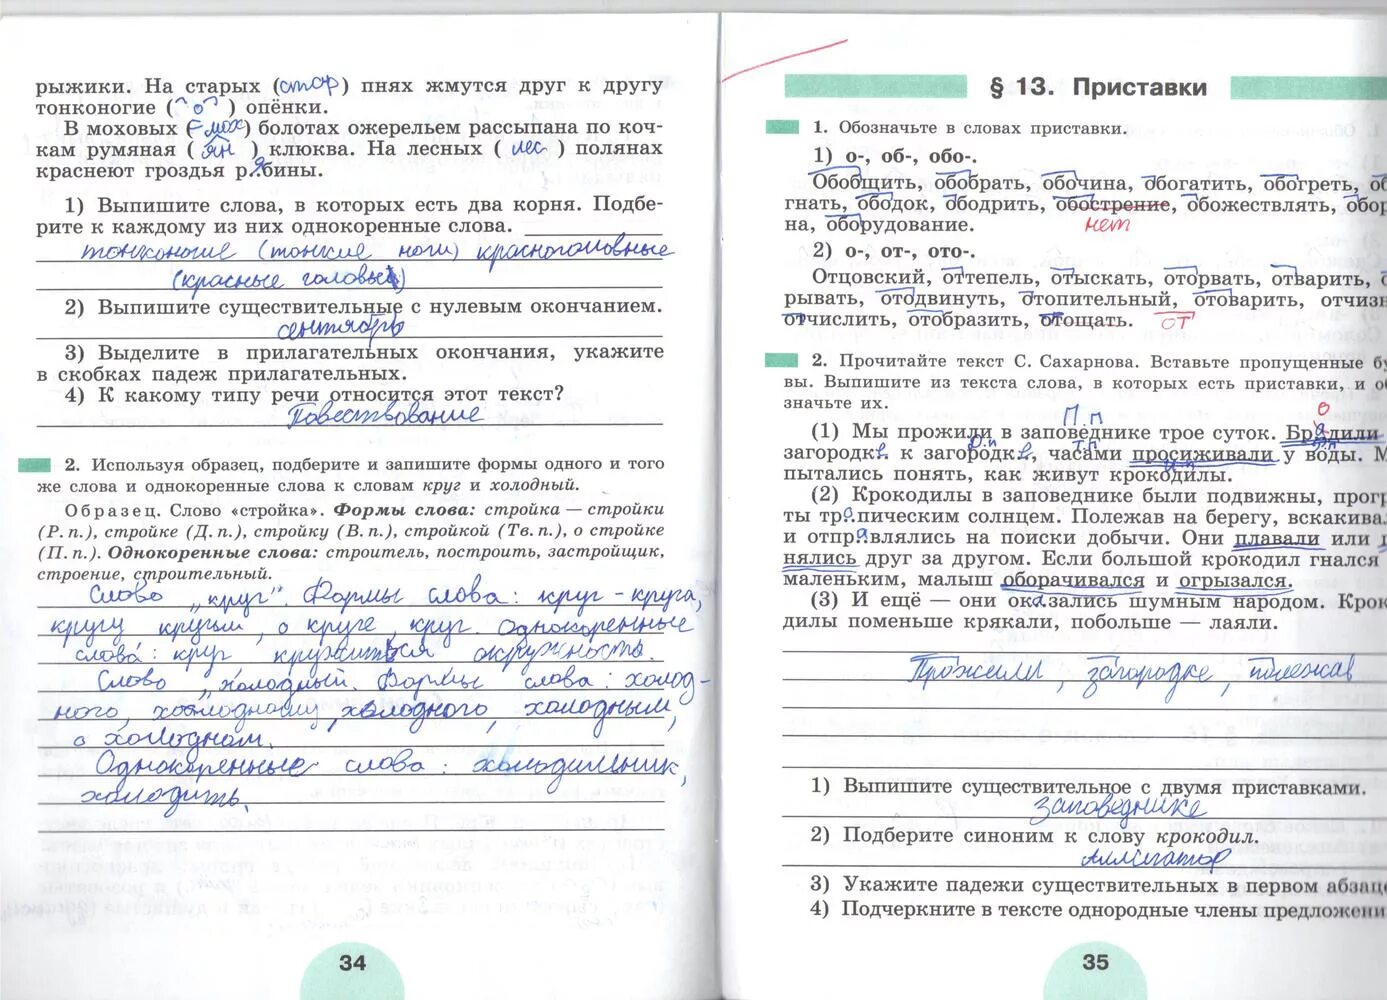 рыжики. На старых (стар) пнях жмутся друг к другу
тонконогие ( о ) опёнки.
В моховых ( мох) болотах ожерельем рассыпана по коч-
кам румяная ( ян ) клюква. На лесных ( лес ) полянах
краснеют гроздья рябины.
1) Выпишите слова, в которых есть два корня. Подбе-
рите к каждому из них однокоренные слова.
тонконогие (тонкие ноги) красноголовые
(красные головы)
2) Выпишите существительные с нулевым окончанием.
сентябрь
3) Выделите в прилагательных окончания, укажите
в скобках падеж прилагательных.
4) К какому типу речи относится этот текст?
Повествование
2. Используя образец, подберите и запишите формы одного и того
же слова и однокоренные слова к словам круг и холодный.
Образец. Слово «стройка». Формы слова: стройка — стройки
(Р. п.), стройке (Д. п.), стройку (В. п.), стройкой (Тв. п.), о стройке
(П. п.). Однокоренные слова: строитель, построить, застройщик,
строение, строительный.
Слово „круг". Формы слова: круг - круга,
кругу кругом, о круге, круг. Однокоренные
слова: круг кружиться окружность.
Слово „холодный. Формы слова: холод-
ного, холодному, холодного, холодным,
о холодном.
Однокоренные слова: холодильник,
холодить.
34
§ 13. Приставки
1. Обозначьте в словах приставки.
1) о-, об-, обо-.
Обобщить, обобрать, обочина, обогатить, обогреть, об
гнать, ободок, ободрить, обострение, обожествлять, обор
на, оборудование. нет
2) о-, от-, ото-.
Отцовский, оттепель, отыскать, оторвать, отварить, о
рывать, отодвинуть, отопительный, отоварить, отчизн
отчислить, отобразить, отощать. от
2. Прочитайте текст С. Сахарнова. Вставьте пропущенные бу
вы. Выпишите из текста слова, в которых есть приставки, и об
значьте их.
П.п о
(1) Мы прожили в заповеднике трое суток. Брадили
Д.п Т.п Р.п
загородке к загородке, часами просиживали у воды. М
И.п
пытались понять, как живут крокодилы.
(2) Крокодилы в заповеднике были подвижны, прогр
ты тропическим солнцем. Полежав на берегу, вскакива
и отправлялись на поиски добычи. Они плавали или г
нялись друг за другом. Если большой крокодил гнался
маленьким, малыш оборачивался и огрызался.
(3) И ещё — они оказались шумным народом. Крок
дилы поменьше крякали, побольше — лаяли.
Прожили, загородке, полежав
1) Выпишите существительное с двумя приставками.
заповеднике
2) Подберите синоним к слову крокодил.
аллигатор
3) Укажите падежи существительных в первом абзаце
4) Подчеркните в тексте однородные члены предложени
35